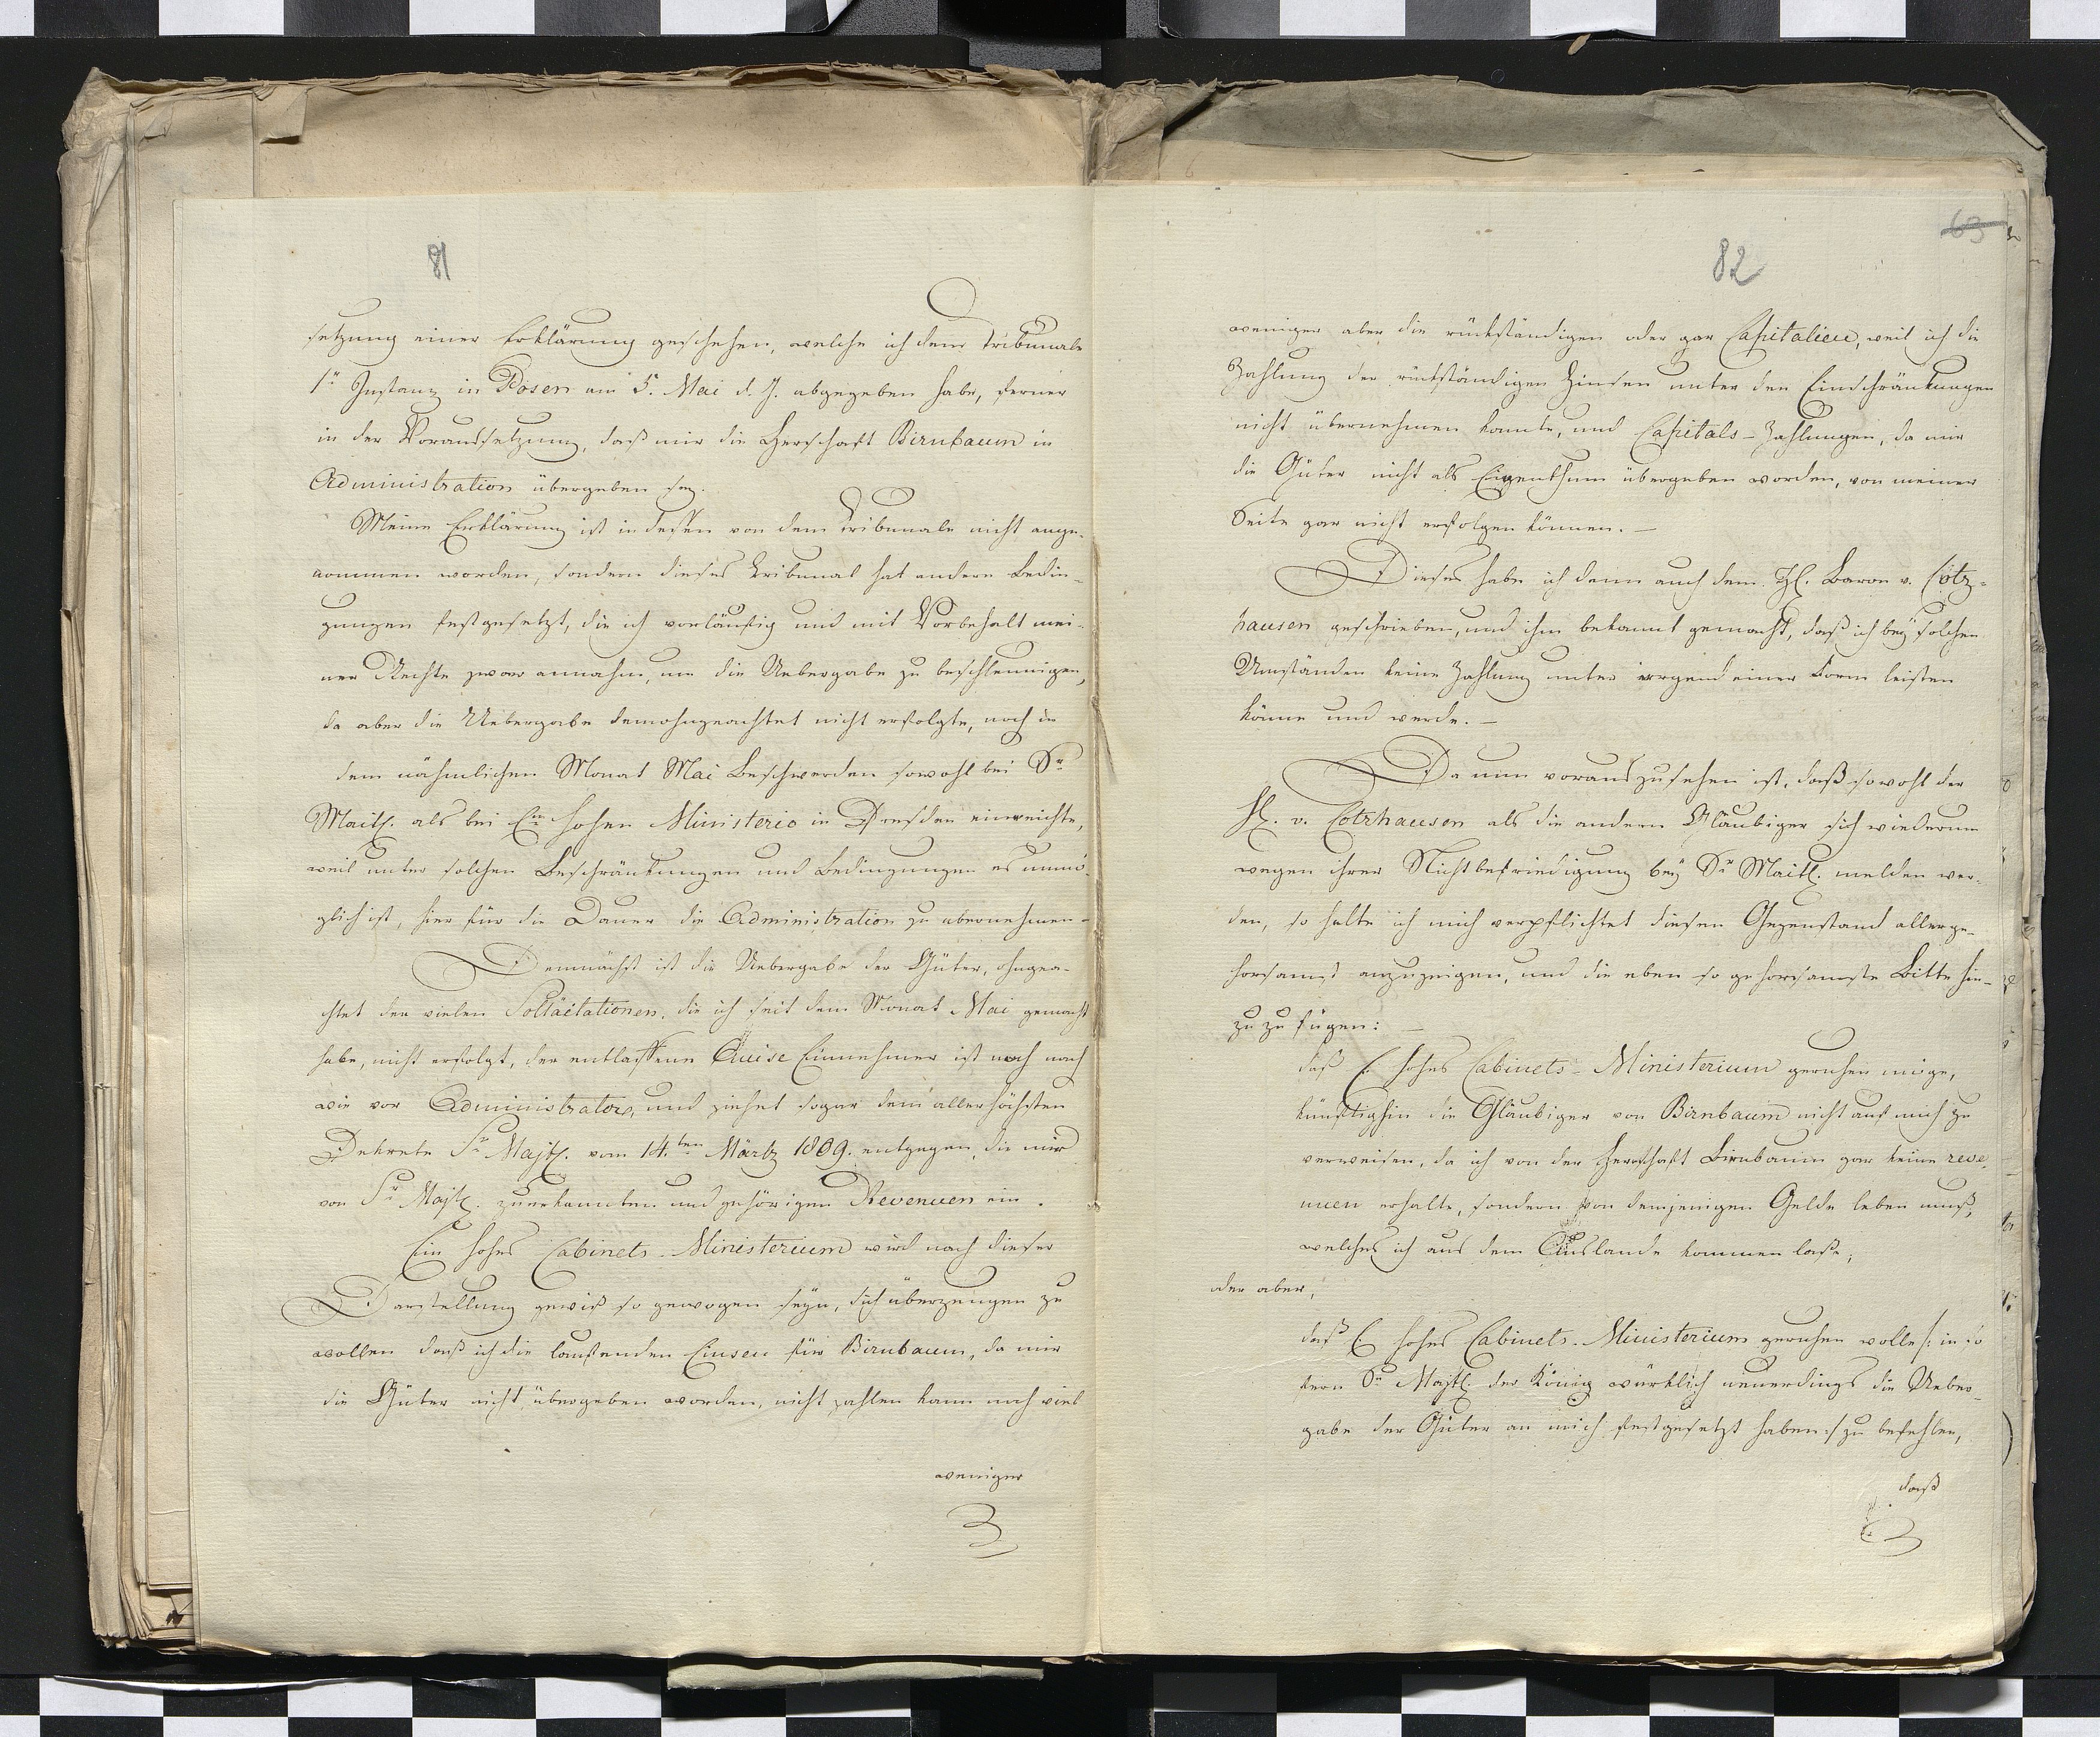 81
setzung einer Erklärung geschehen, welche ich dem Tribunale
1r Instanz in Posen am 5. Mai d. J. abgegeben habe, ferner
in der Voraussetzung, daß mir die Herschaft Birnbaum in
Administration übergeben sey.
Meine Erklärung ist indessen von dem Tribunale nicht ange-
nommen worden, sondern dieses Tribunal hat andere Bedin-
gungen festgesetzt, die ich vorläufig und mit Vorbehalt mei-
ner Rechte zwar annahm, um die Uebergabe zu beschleunigen,
da aber die Uebergabe demohngeachtet nicht erfolgte, noch in
dem nähmlichen Monat Mai Beschwerden sowohl bei Sr
Maitt. als bei Em hohen Ministerio in Dresden einreichte,
weil unter solchen Beschränkungen und Bedingungen es unmö-
glich ist, hier für die Dauer die Administration zu übernehmen-
Demnächst ist die Uebergabe der Güter, ohngea-
chtet der vielen Sollicitationen, die ich seit dem Monat Mai gemacht
habe, nicht erfolgt, der entlassene Accise Einnehmer ist noch nach
wie vor Administrator, und ziehet sogar dem allerhöchsten
Dekrete Sr Majtt. vom 14.ten Märtz 1809. entgegen, die mir
von Sr Majtt. zuerkannten und gehörigen Revenuen ein.
Ein hohes Cabinets-Ministerium wird nach dieser
Darstellung gewiß so gewogen seyn, sich überzeugen zu
wollen daß ich die laufenden Cinsen für Birnbaum, da mir
die Güter nicht übergeben worden, nicht zahlen kann noch viel
weniger
63
82
weniger aber die rückständigen oder gar Capitalien, weil ich die
Zahlung der rückständigen Zinsen unter den Einschränkungen
nicht übernehmen konnte, und Capitals-Zahlungen, da mir
die Güter nicht als Eigenthum übergeben worden, von meiner
Seite gar nicht erfolgen können. –
Dieses habe ich denn auch dem H. Baron v. Cotz-
hausen geschrieben, und ihm bekannt gemacht, daß ich bey solchen
Umständen keine Zahlung unter irgend einer Form leisten
könne und werde. –
Da nun vorauszusehen ist, daß sowohl der
H. v. Cotzhausen als die andern Gläubiger sich wiederum
wegen ihrer Nichtbefriedigung bey Sr Maitt. melden wer-
den, so halte ich mich verpflichtet diesen Gegenstand allerge-
horsamst anzuzeigen, und die eben so gehorsamste Bitte hin-
zu zu fügen: –
daß E. hohes Cabinets-Ministerium geruhen möge,
künftighin die Gläubiger von Birnbaum nicht auf mich zu
verweisen, da ich von der Herrschaft Birnbaum gar keine reve-
nuen erhalte, sondern von demjenigen Gelde leben muß,
welches ich aus dem Auslande kommen lasse;
oder aber,
daß E hohes Cabinets-Ministerium geruhen wolle /: in so
fern Sr Majtt. der König würklich neuerdings die Ueber-
gabe der Güter an mich festgesetzt haben :/ zu befehlen,
daß